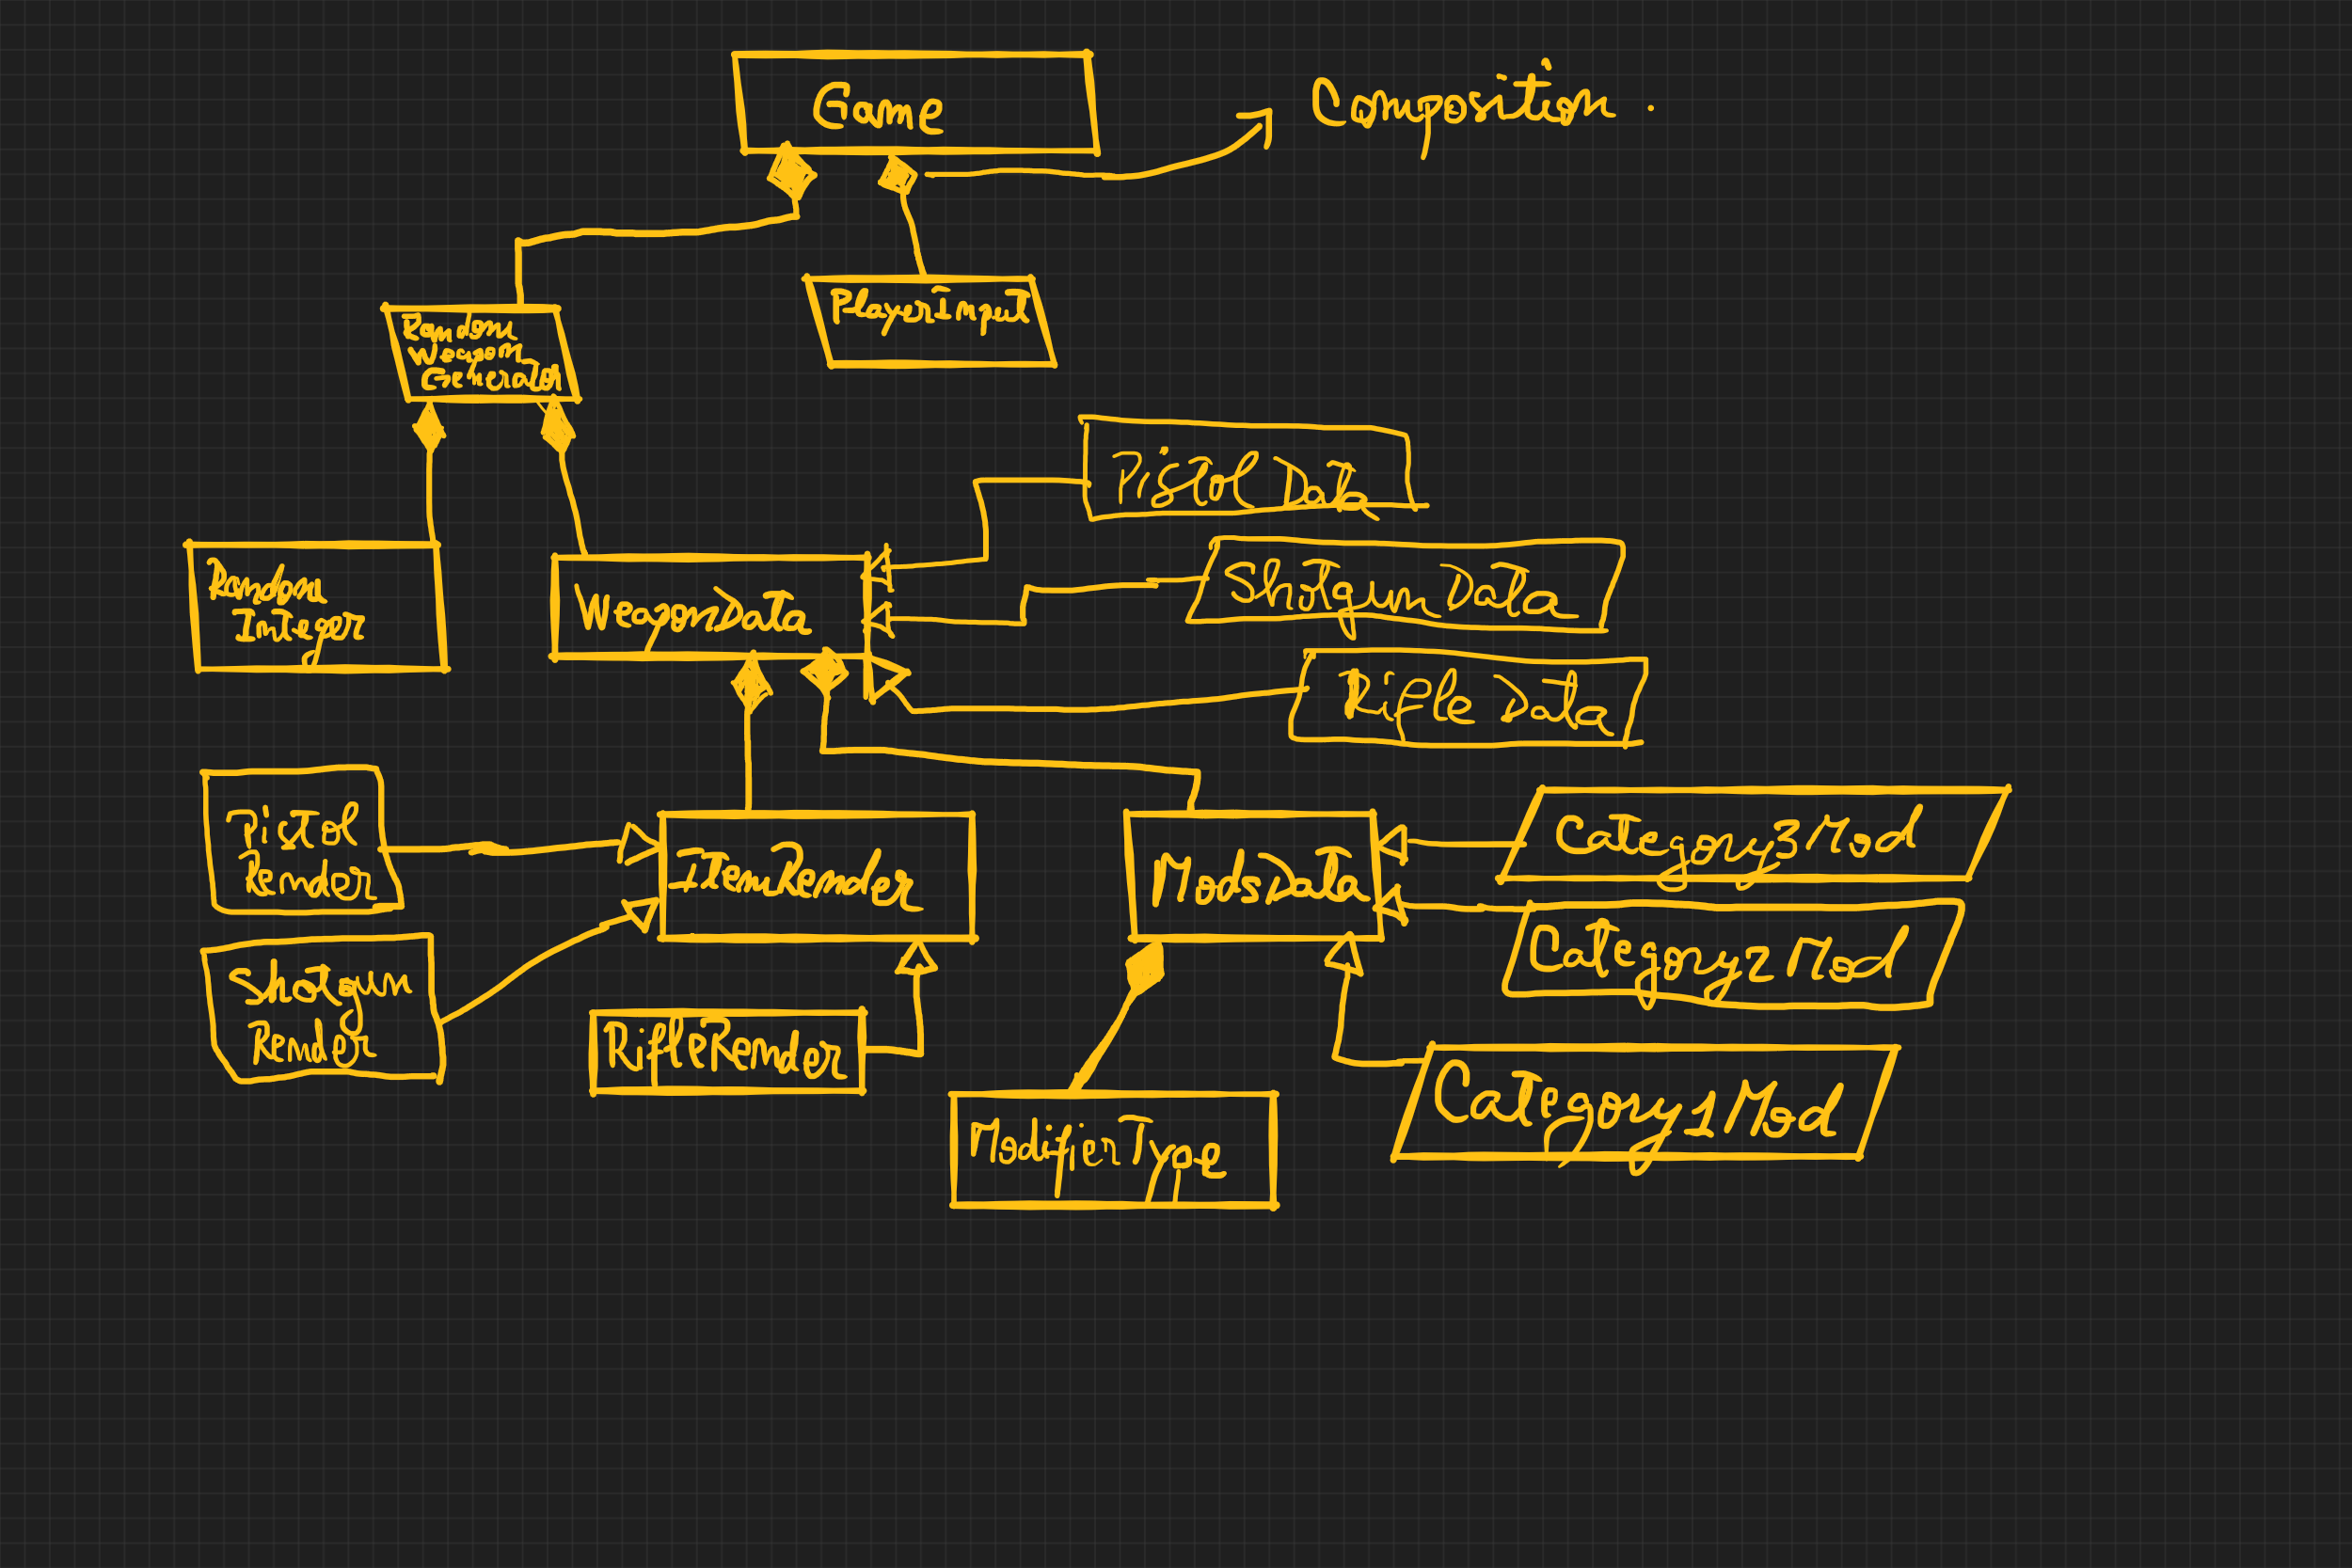 Game
Composition.
PlayerInput
Random
Weapon
Generator
Pistol Data
Random
Integer
WeaponData
Shotgun Data
Rifle Data
Pistol
Render
ItemRender
ModsData
Category3Mod
Category2Mod
Shotgun
Render
RifleRender
Category1Mod
ModifierType